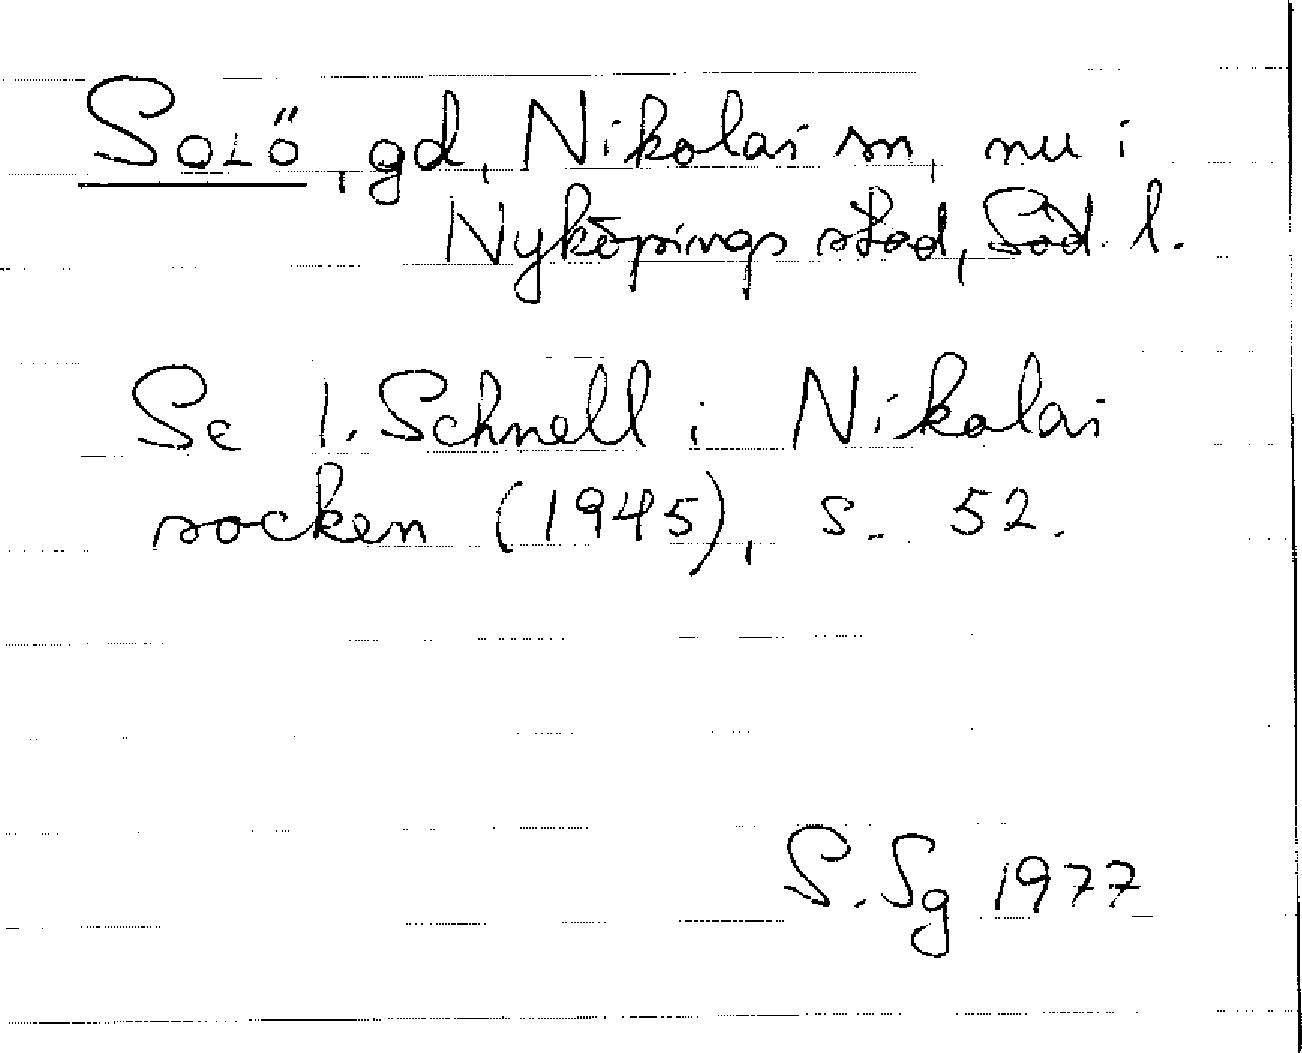 Solö, gd, Nikolai sn, nu i
Nyköpings stad, Söd. l.
Se I. Schnell i Nikolai
socken (1945), s. 52.
S. Sg 1977